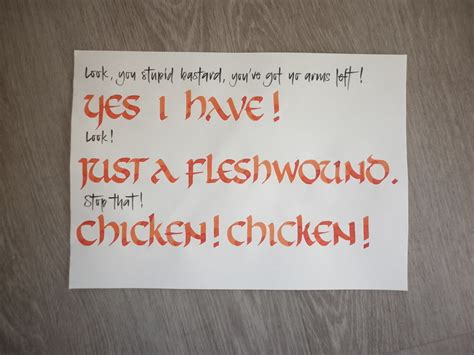 Look, you stupid bastard, you've got no arms left!
YES I HAVE!
Look!
JUST A FLESHWOUND.
Stop that!
CHICKEN! CHICKEN!